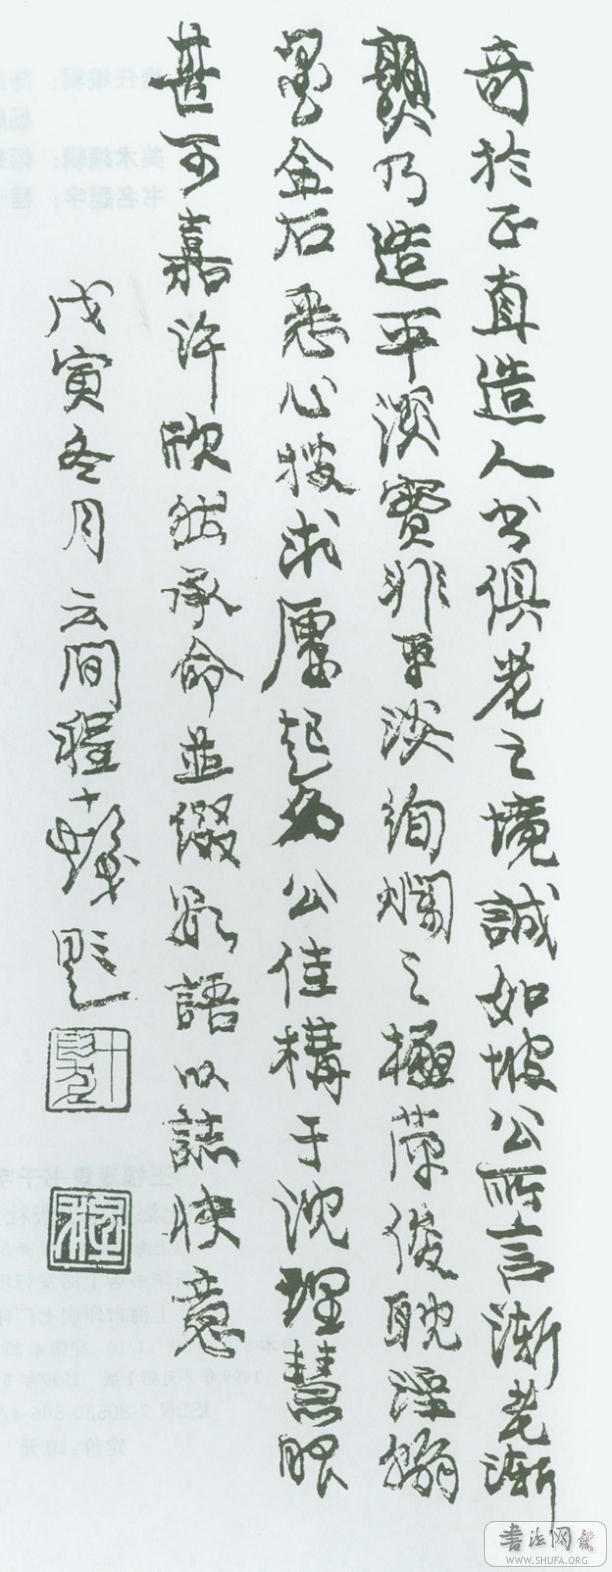 奇於正直造人书俱老之境誠如坡公所言漸老漸
熟乃造平淡實非平淡絢爛之極俊耽淫翰
墨金石悉心搜求屢起为公佳構于沈埋慧眼
甚可嘉許欣然承命並綴數語以誌快意
戊寅冬月云間程十髮題
程
書法网
WWW.SHUFA.ORG